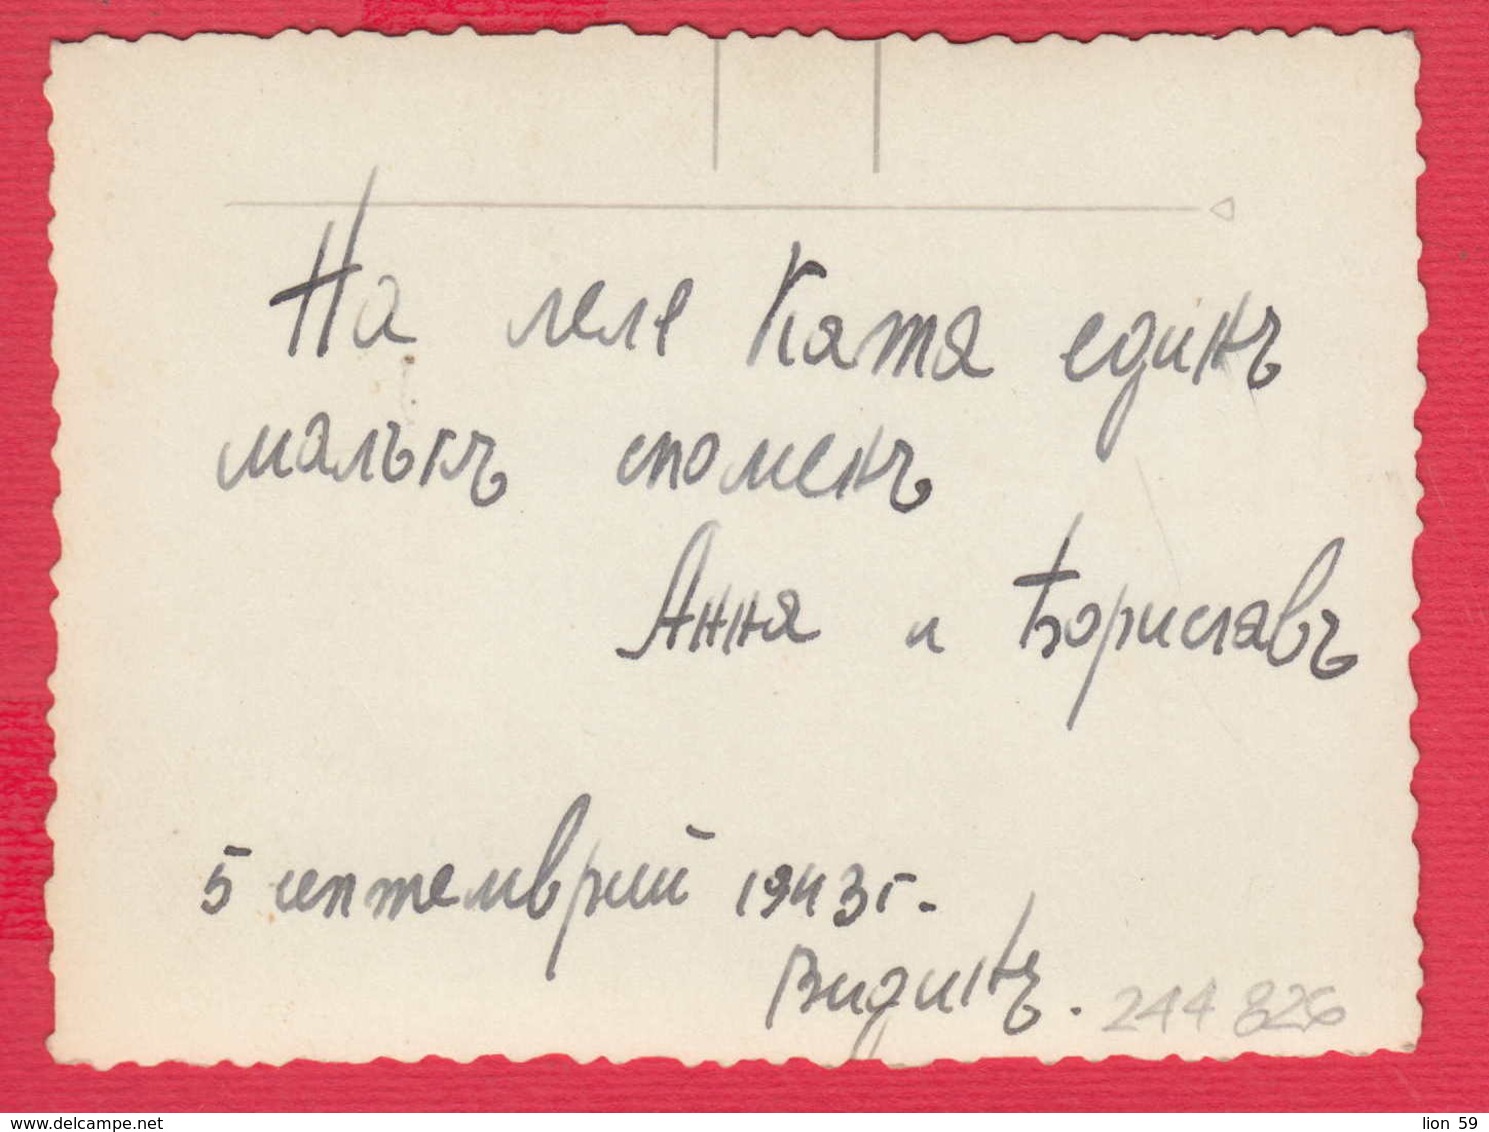 На леле Катя единъ
малъкъ споменъ
Анна и Бориславъ
5 септемврий 1943 г.
Видинъ.
244 826
lion 59